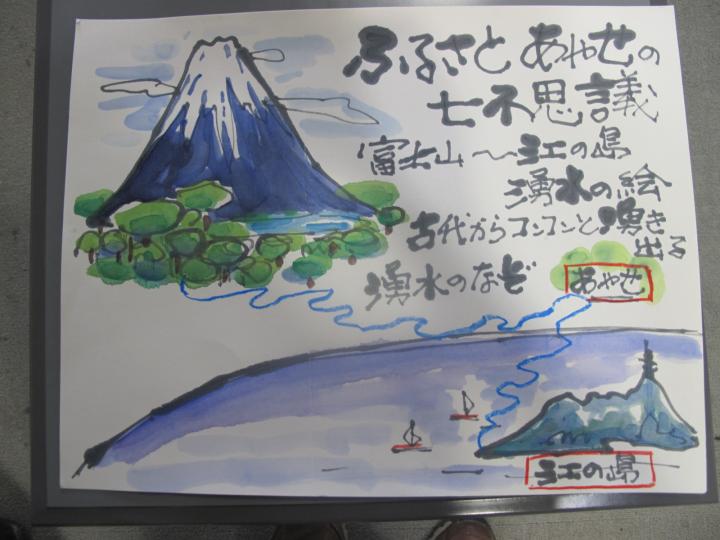 ふるさとあやせの
七不思議
富士山〜江の島
湧水の絵
古代からコンコンと湧き
出る
湧水のなぞ
あやせ
江の島